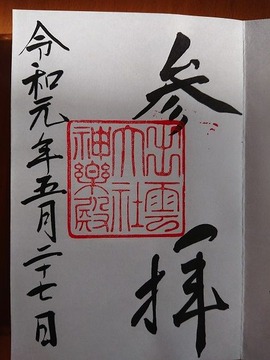 参拝
出雲
大社
神楽殿
令和元年五月二十七日